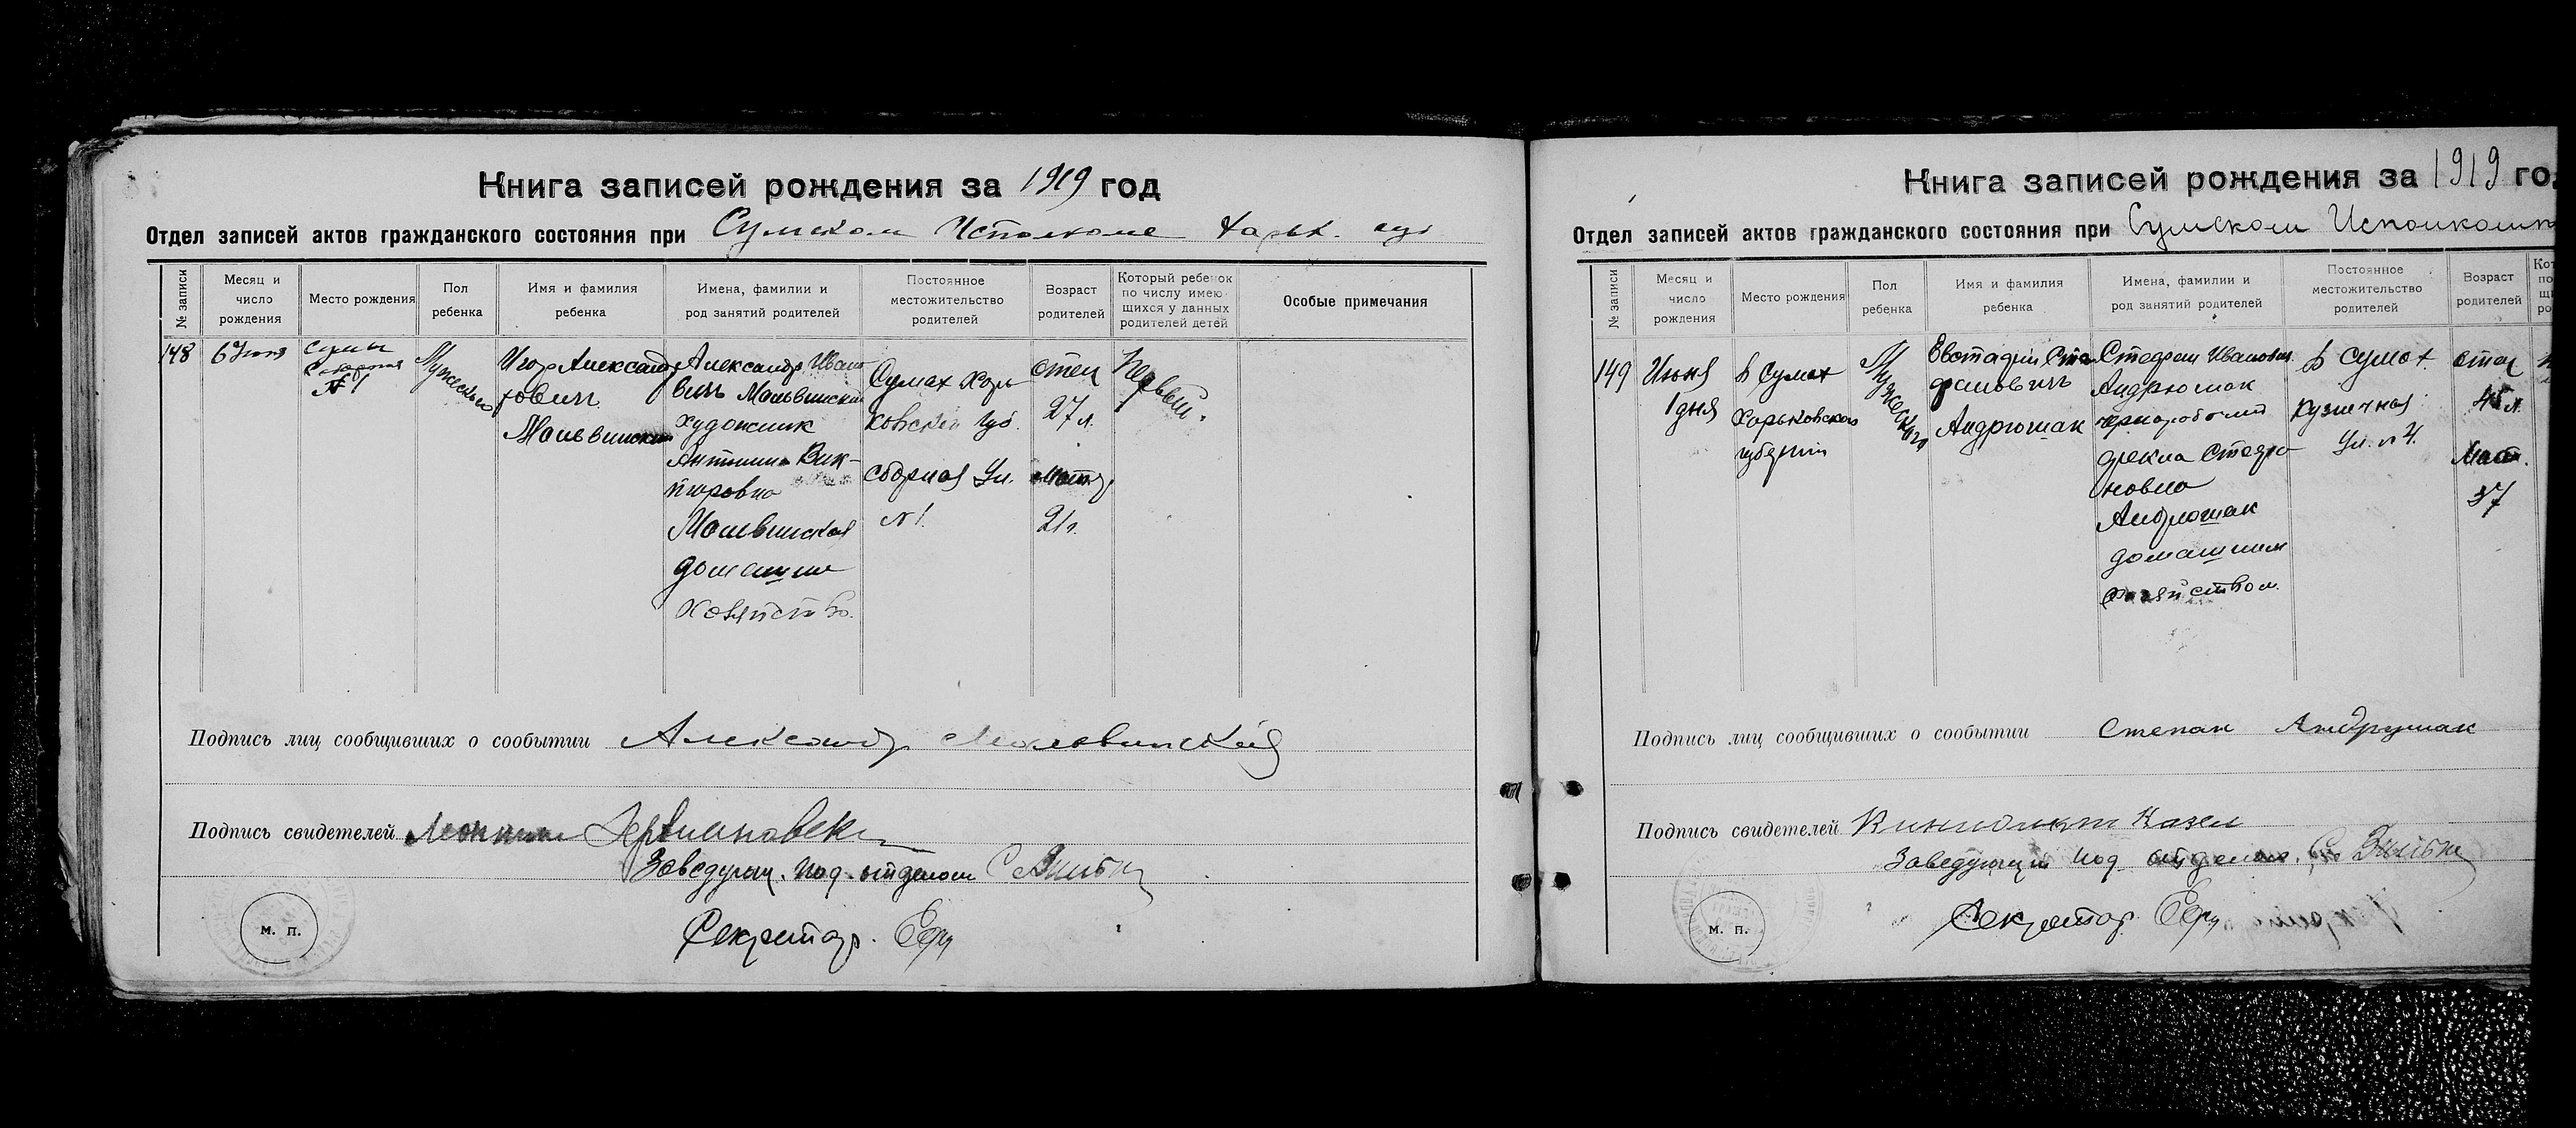 Книга записей рождения за 1919 год
Отдел записей актов гражданского состояния при Сумском Исполкоме Харьк.
№ записи
Месяц и
число
рождения
Место рождения
Пол
ребенка
Имя и фамилия
ребенка
Имена, фамилии и
род занятий родителей
Постоянное
местожительство
родителей
Возраст
родителей
Который ребенок
по числу имею-
щихся у данных
родителей детей
Особые примечания
148
6 Июня
Сумы
№ 1
Мужеского
Игорь Александ
рович
Мальвинский
Александр Ивано
вичъ Мальвинский
художник
Антонина Вик-
торовна
Мальвинская
домашнее
хозяйство.
Сумах Харь
ковской губ.
Сборная Ул.
№ 1.
отец
27 л.
мать
21 г.
Первый.
Подпись лиц сообщивших о сообытии Александр Мальвинский
Подпись свидетелей
Заведущ. под-отделом
Секретарь.
м. п.
Книга записей рождения за 1919 го
Отдел записей актов гражданского состояния при Сумском Исполкоме
№ записи
Месяц и
число
рождения
Место рождения
Пол
ребенка
Имя и фамилия
ребенка
Имена, фамилии и
род занятий родителей
Постоянное
местожительство
родителей
Возраст
родителей
Кот
по
щи
ро
149
Июня
1 дня
В Сумах
Харьковской
губернии
Мужеского
Евстафий Сте
фановичъ
Андрюшак
Стефан Иванович
Андрюшак
чернорабочий
Фекла Стефа
новна
Андрюшак
домашним
хозяйством.
В Сумах.
Кузнечная
Ул. № 4.
отец
45 л.
Мать.
37
Подпись лиц сообщивших о сообытии Степан Андрушак
Подпись свидетелей
Заведующий под отделом.
Секретарь.
м. п.